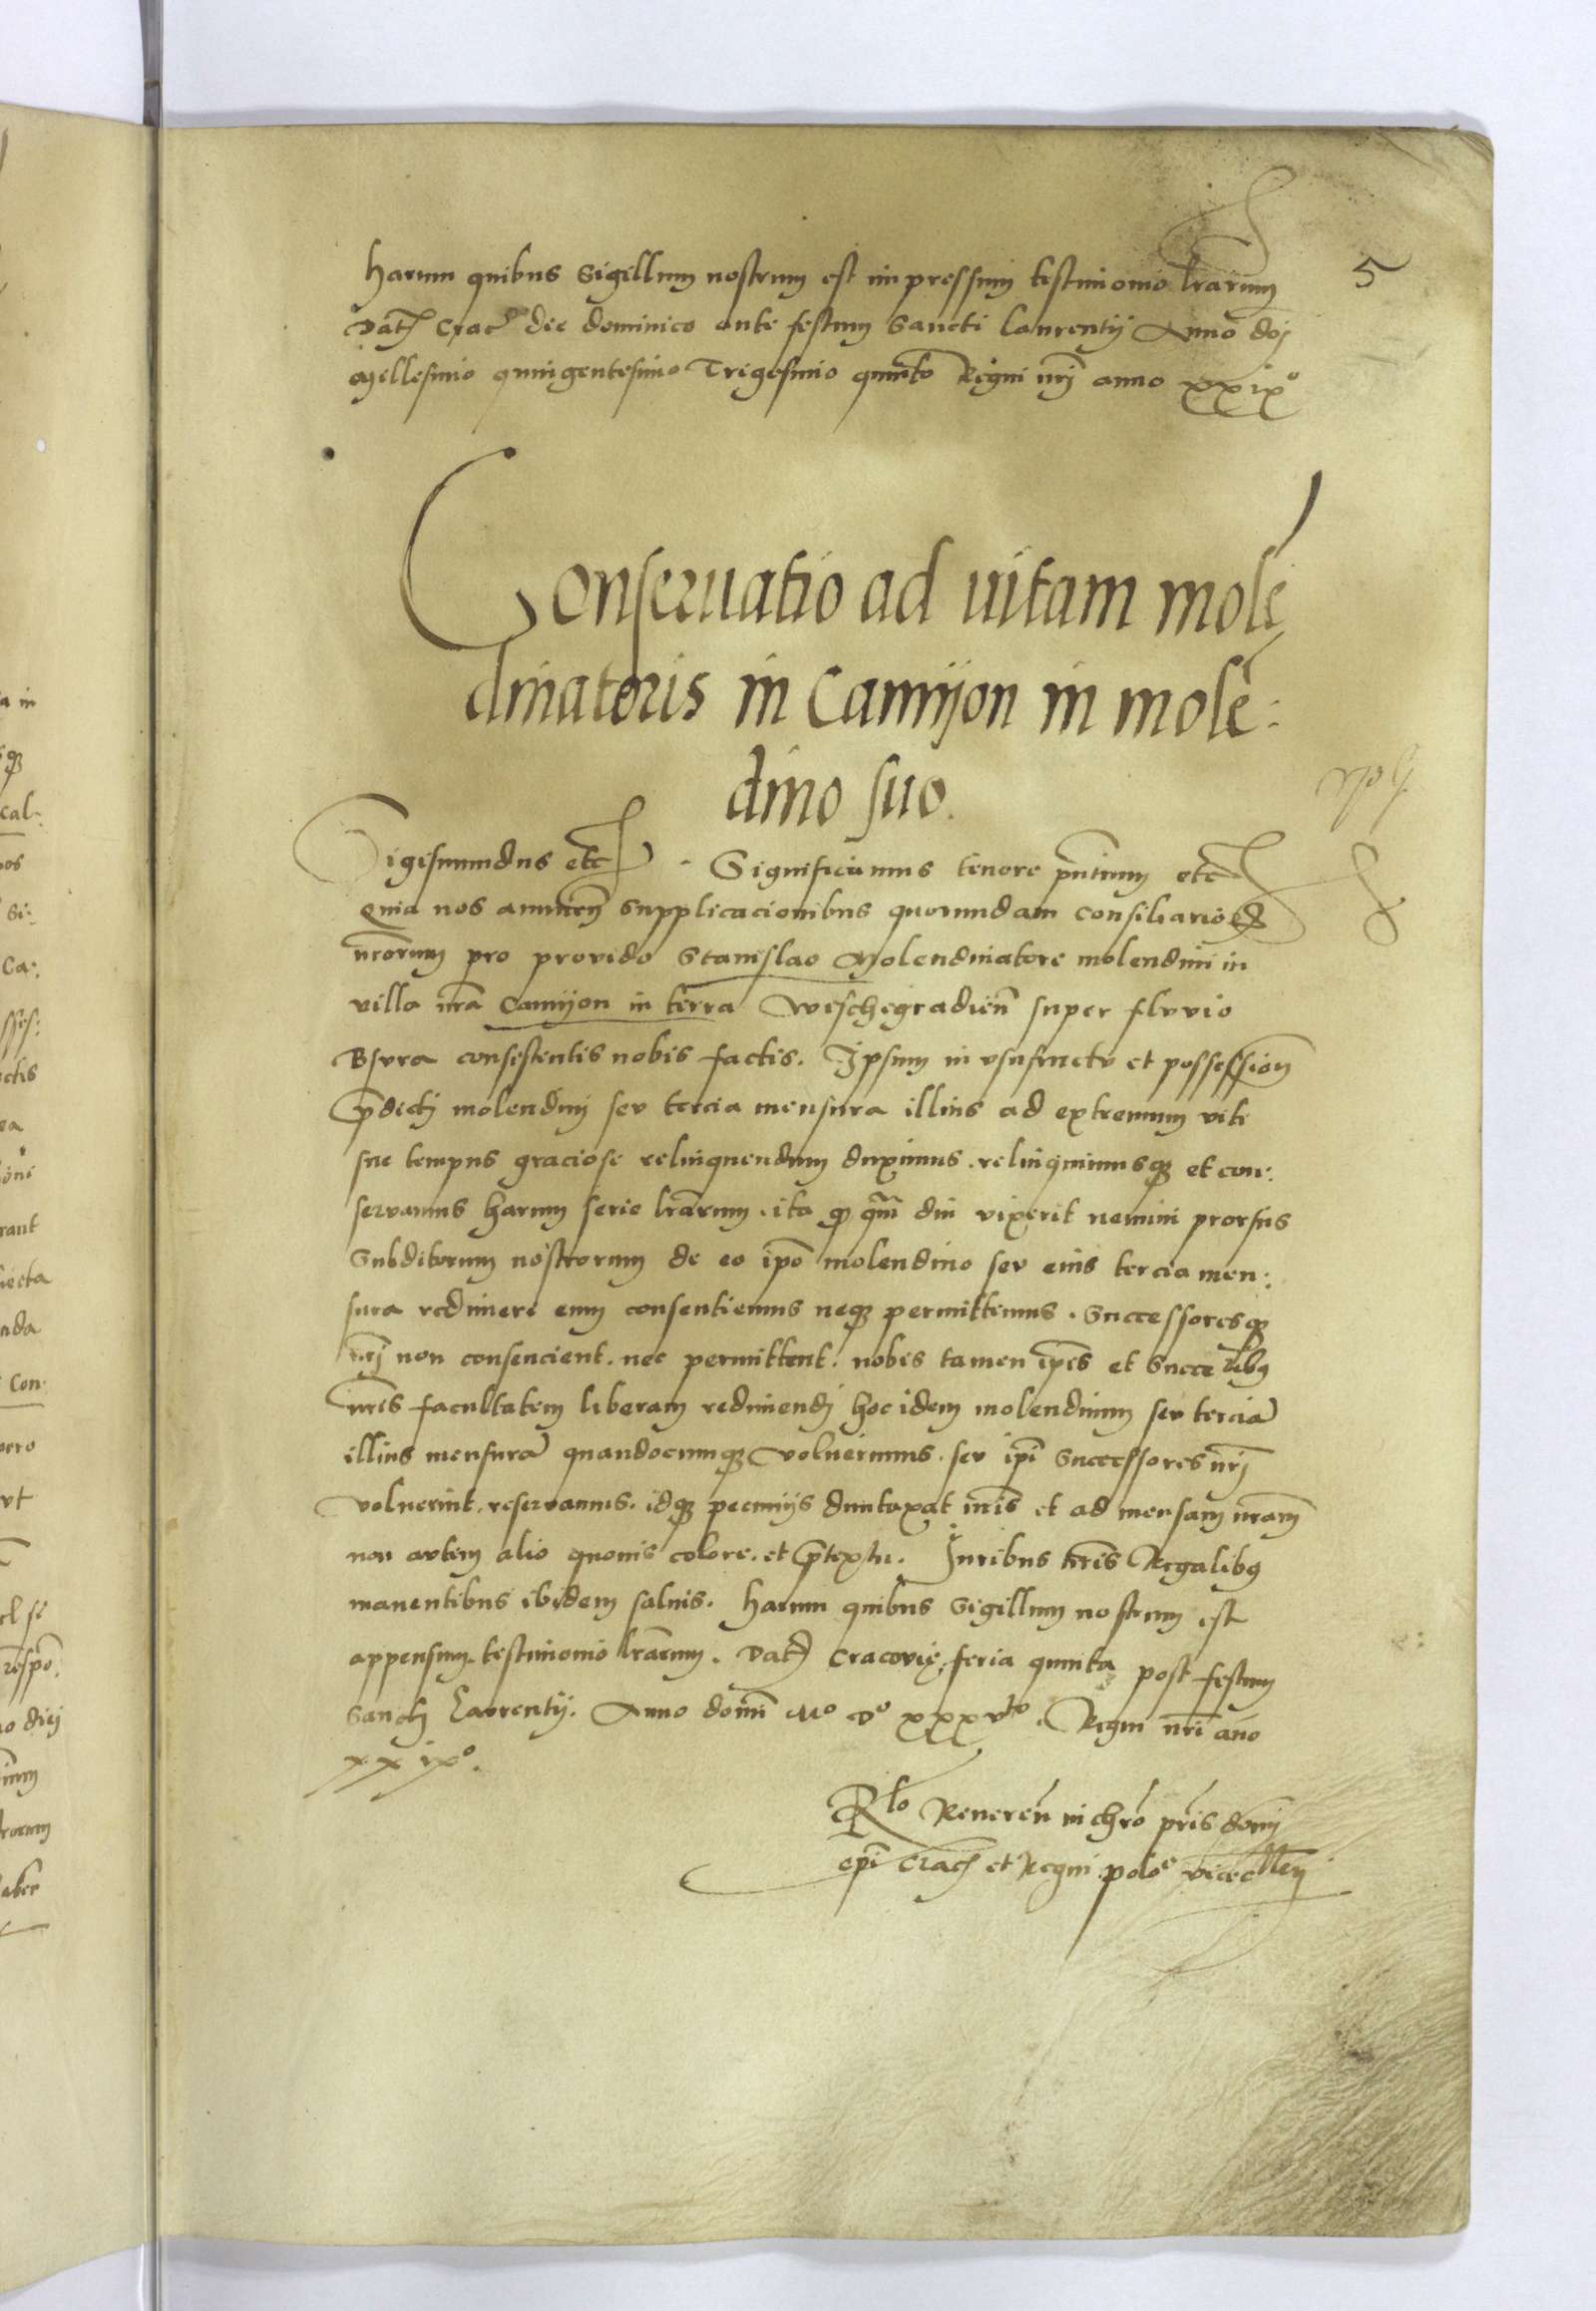 harum quibus Sigillum nostrum est impressum testimonio lrarum
5
Dat Crac die dominico ante festum Sancti Laurentij Anno doi
Millesimo quingentesimo Trigesimo quinto Regni nri anno xxixº
Conseruatio ad uitam mole
dinatoris in Camijon in mole:
dino suo.
Sigismundus etc. Significamus tenore pntium etc
Quia nos annuen supplicacionibus quorundam consiliario
nrorum pro provido Stanislao Molendinatore molendini in
villa nra Camijon in terra Wyschegradien super fluvio
Bsura consistentis nobis factis. Ipsum in vsufructu et possession
pdicti molendini seu tercia mensura illius ad extremum vite
sue tempus graciose relinquendum duximus. relinquimusq et con:
servamus harum serie lrarum. ita q qm diu vixerit nemini prorsus
Subditorum nostrorum de eo ipo molendino seu eius tercia men:
sura redimere eum consentiemus neq permittemus. Successoresq
nri non consencient. nec permittent. nobis tamen ipis et Succeribq
nris facultatem liberam redimendi hoc idem molendinum seu tercia
illius mensura quandocumq voluerimus. seu ipi Successores nri
voluerint. reservamus. idq pecuniis duntaxat nris et ad mensam nram
non autem alio quovis colore. et ptextu. Iuribus nris Regalibq
manentibus ibidem salvis. Harum quibus Sigillum nostrum est
appensum testimonio lrarum. Dat Cracovie feria quinta post festum
Sancti Laurentij. Anno domi Mº Dº xxxvto. Regni nri ano
xxixº.
Rlo Reueren in chro pris domi
epi Crac et Regni polo vicecllrij